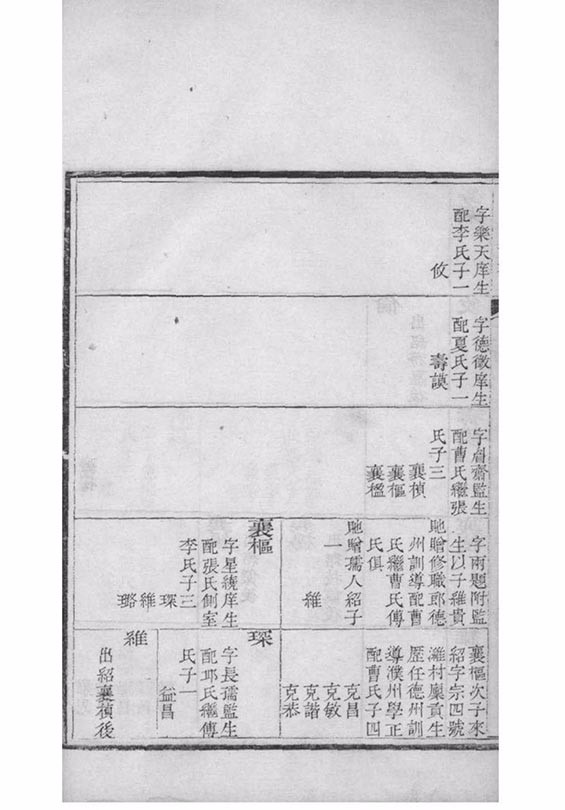 字樂天庠生
配李氏子一
攸
字德徵庠生
配夏氏子一
壽謨
字眉齋監生
配曹氏繼張
氏子三
襄楨
襄樞
襄楹
字雨題附監
生以子維貴
貤贈修職郎德
州訓導配曹
氏繼曹氏傅
氏俱
貤贈孺人紹子
一
維
襄樞
字星統庠生
配張氏側室
李氏子三
琛
維
璐
襄樞次子來
紹字宗四號
濰村廩貢生
歷任德州訓
導濮州學正
配曹氏子四
克昌
克敏
克諧
克恭
琛
字長孺監生
配邱氏繼傅
氏子一
益昌
維
出紹襄楨後